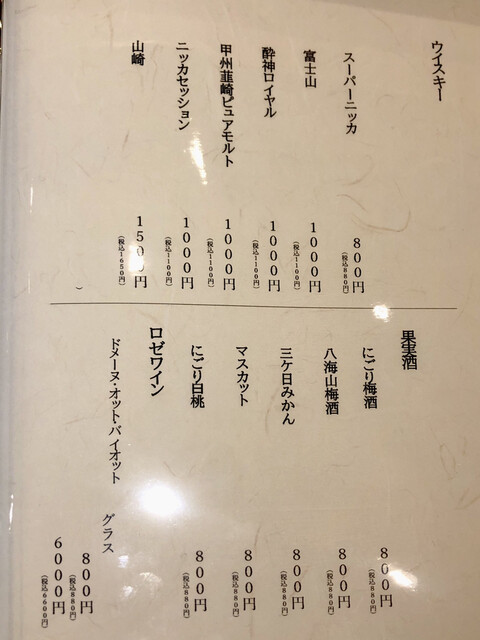 ウイスキー
スーパーニッカ 800円(税込880円)
富士山 1000円(税込1100円)
酔神ロイヤル 1000円(税込1100円)
甲州韮崎ピュアモルト 1000円(税込1100円)
ニッカセッション 1000円(税込1100円)
山崎 1500円(税込1650円)
果実酒
にごり梅酒 800円(税込880円)
八海山梅酒 800円(税込880円)
三ケ日みかん 800円(税込880円)
マスカット 800円(税込880円)
にごり白桃 800円(税込880円)
ロゼワイン
ドメーヌ・オット・バイオット
グラス 800円(税込880円)
6000円(税込6600円)